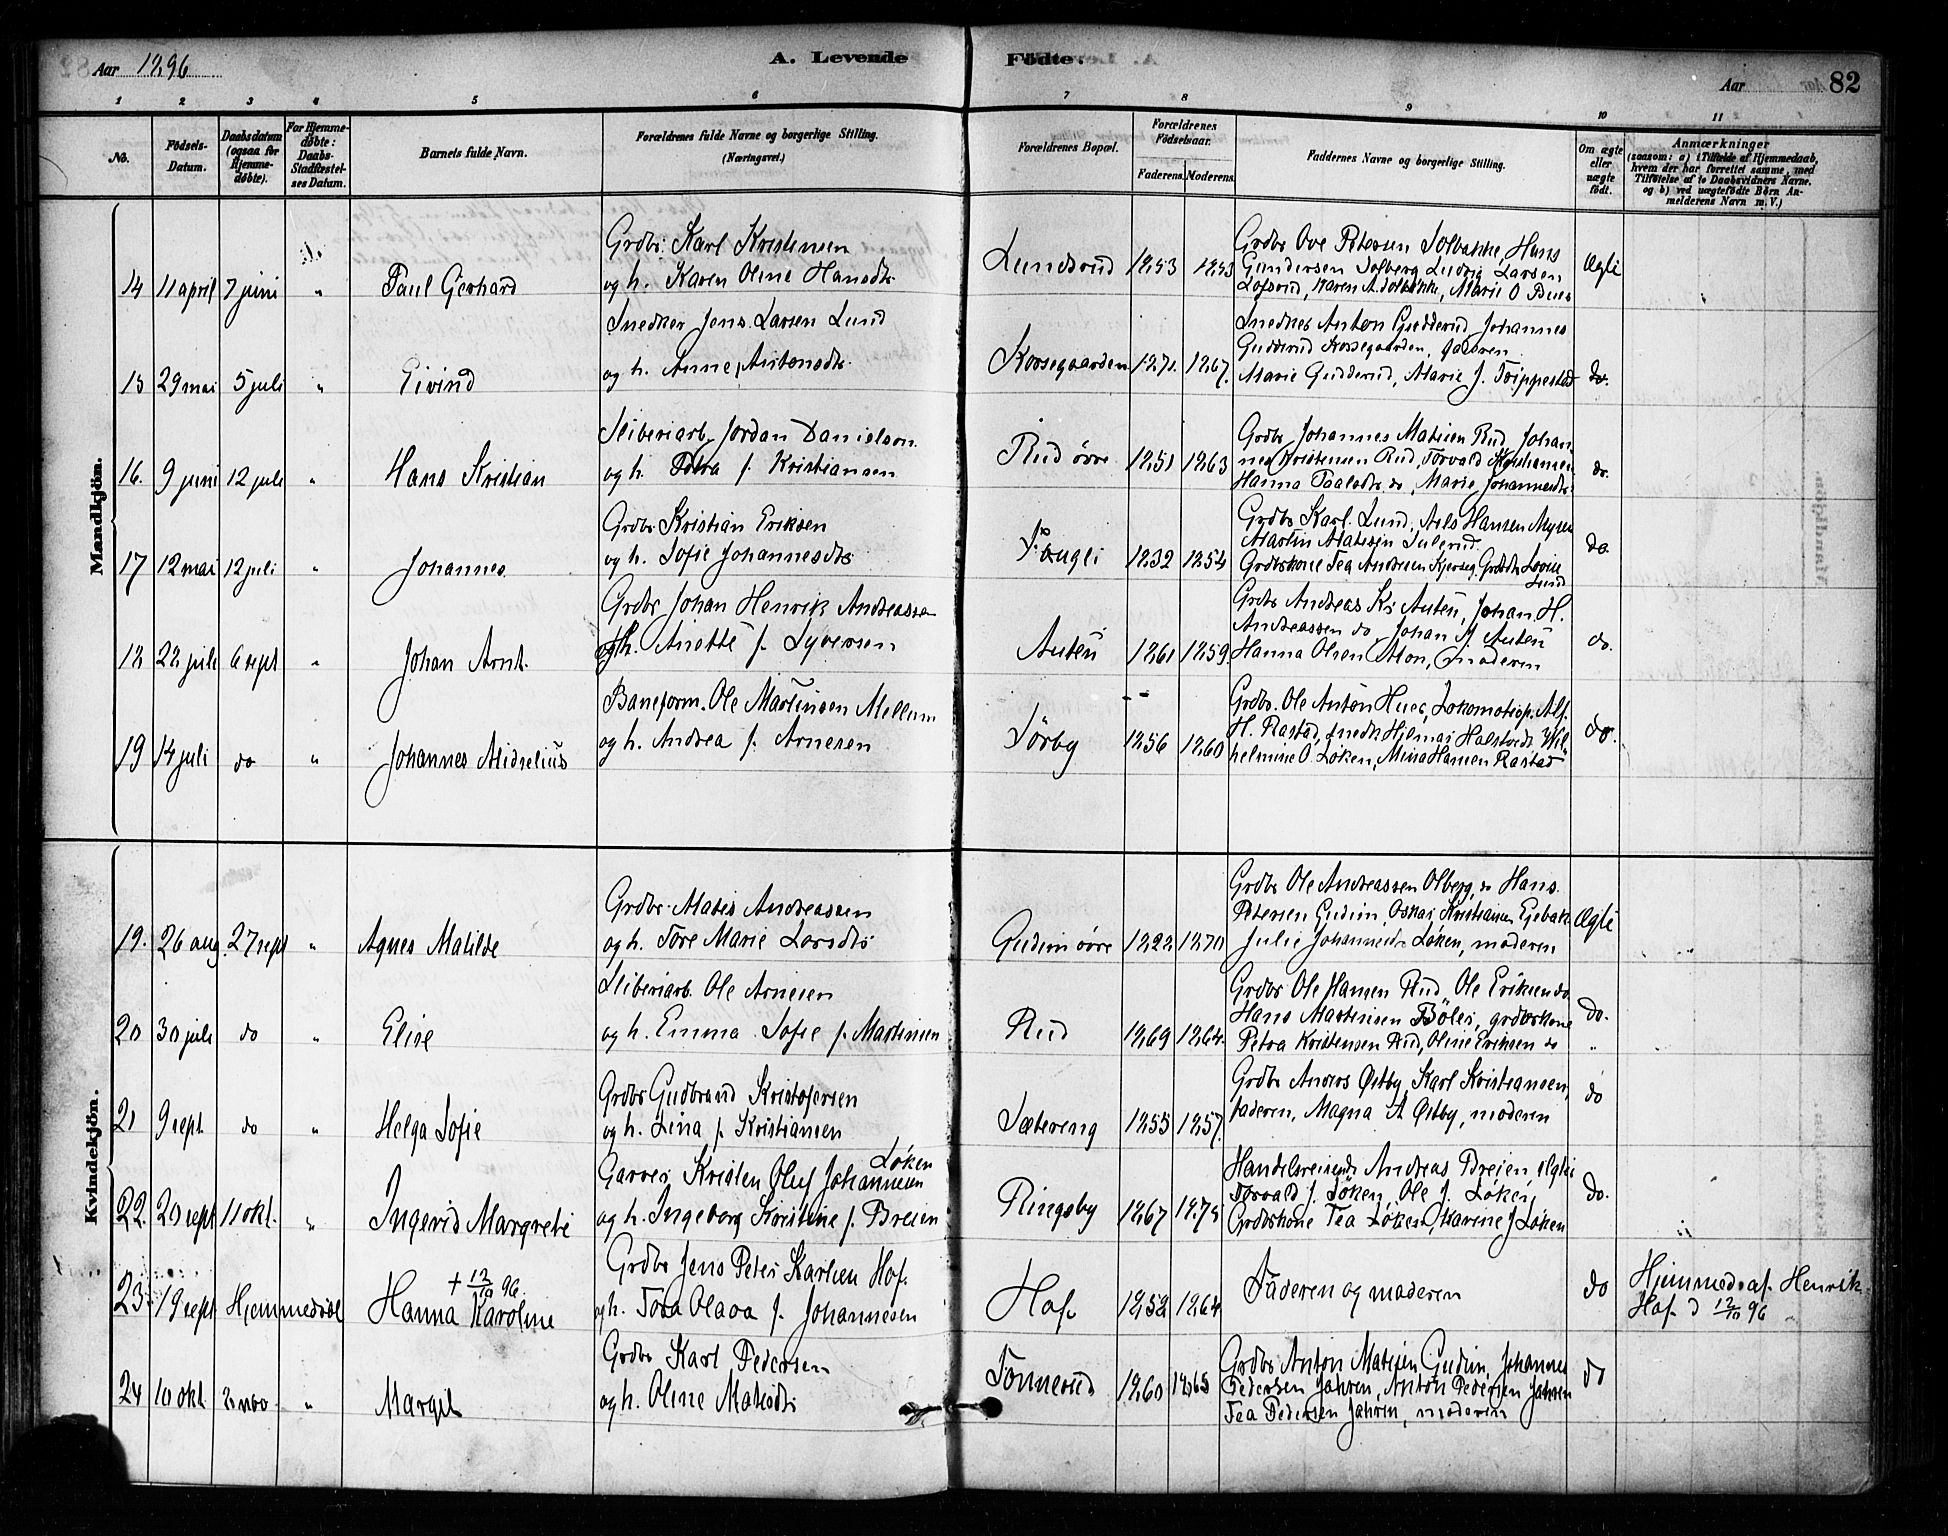 Aar 1896
A. Levende Fødte.
Aar
82
1 2 3 4 5 6 7 8 9 10 11
No.
Fødsels-Datum.
Daabsdatum (ogsaa for Hjemmedøbte).
For Hjemmedøbte: Daabs-Stadfæstelses Datum.
Barnets fulde Navn.
Forældrenes fulde Navne og borgerlige Stilling. (Næringsvei.)
Forældrenes Bopæl.
Forældrenes Fødselsaar.
Faderens. Moderens.
Faddernes Navne og borgerlige Stilling.
Om ægte eller uægte født.
Anmærkninger
(saasom: a) i Tilfælde af Hjemmedaab, hvem der har forrettet samme, med Tilføielse af to Daabsvidners Navne, og b) ved uægtefødte Børn Anmelderens Navn m. V.)
Mandkjön.
14 11 april 7 juni " Paul Gerhard
Grdbr. Karl Kristensen
og h. Karen Oline Hansdtr
Lundsrud 1853 1853
Grdbr Ove Petersen Solbakke, Hans
Gundersen Solberg Ludvig Larsen
Lofsrud, Karen A. Solbakke, Marie O
Ægte
15 29 mai 5 juli " Eivind
Snedker Jens Larsen Lund
og h. Anne Antonsdtr
Korsegaarden 1871. 1867.
Snedker Anton Gudderud, Johannes
Gudderud Korsegaarden, faderen
Marie Gudderud, Marie J. Trippestad
do.
16. 9 juni 12 juli " Hans Kristian
Sliberiarb. Jordan Danielson
og h. Petra f. Kristiansen
Rud øvre 1851 1863
Grdbr Johannes Matisen Rud, Johan-
nes Kristensen Rud, Torvald Kristiansen
Hanna Paalsdtr do, Marie Johannesdtr.
do.
17 12 mai 12 juli " Johannes
Grdbr Kristian Eriksen
og h. Sofie Johannesdtr
1832 1854
Grdbr Karl Lund, Nels Hansen Mysen
Martin Matisen Sulerud
Grdbrskone Tea Andersen Lovise
Lund
do
18 22 juli 6 sept " Johan Arnt.
Grdbr Johan Henrik Andreassen
og h. Anette f. Syversen
Auten 1861 1859.
Grdbr Andreas Kr. Auten, Johan H.
Andreassen do, Johan A Auten
Hanna Olsen Mon, moderen
do.
19 14 juli do " Johannes Midselius
Baneform. Ole Martinsen Mellum
og h. Andrea f. Arnesen
Sørby 1856 1860
Grdbr. Ole Anton Huer, Lokomotivp. Alf.
H. Rastad, snedk Hjelmar Halstvedt, Wil-
helmine O. Løken, Mina Hansen Rastad
do.
Kvindekjön.
19. 26 aug. 27 sept " Agnes Matilde
Grdbr. Matis Andreassen
og h. Tore Marie Larsdtr
Gudim øvre 1822 1870
Grdbr Ole Andreassen Olberg, do Hans
Petersen Gudim, Oskar Kristiansen
Julie Johannesdtr Løken, moderen
Ægte
20 30 juli do " Elise
Sliberiarb. Ole Arnesen
og h. Emma Sofie f. Martinsen
Rud 1869 1864.
Grdbr Ole Hansen Rud Ole Eriksen do
Hans Martinsen Böler, grdbrskone
Petra Kristensen Rud, Oline Eriksen do
do.
21 9 sept. do " Helga Sofie
Grdbr Gudbrand Kristofersen
og h. Lina f. Kristiansen
Sætereng 1855 1857.
Grdbr Anders Østby, Karl Kristiansen,
faderen, Magna A Østby, moderen
do
22. 20 sept 11 okt. " Ingerid Margrete
Garver Kristen Oluf Johannesen Løken
og h. Ingeborg Kristine f. Breien
Ringsby 1867 1875
Handelsreisende Andreas Breien,
Torvald J. Løken, Ole J. Løken
Grdbrskone Tea Løken, Karine J Løken
do.
23. 19 sept Hjemmedøbt + 12/10 96.
Hanna Karoline
Grdbr Jens Peter Karlsen Hof.
og h. Tora Olava f. Johannesen
Hof 1852 1864
Faderen og moderen
do
Hjemmed. af Henrik
Hof d 12/10 96
24 10 okt. 2 nov. " Margit
Grdbr Karl Pedersen
og h. Oline Matisdtr
Tonnerud 1860 1865
Grdbr Anton Matisen Gudim, Johannes
Pedersen Jahren, Anton Pedersen Jahren
Tea Pedersen Jahren, moderen
do